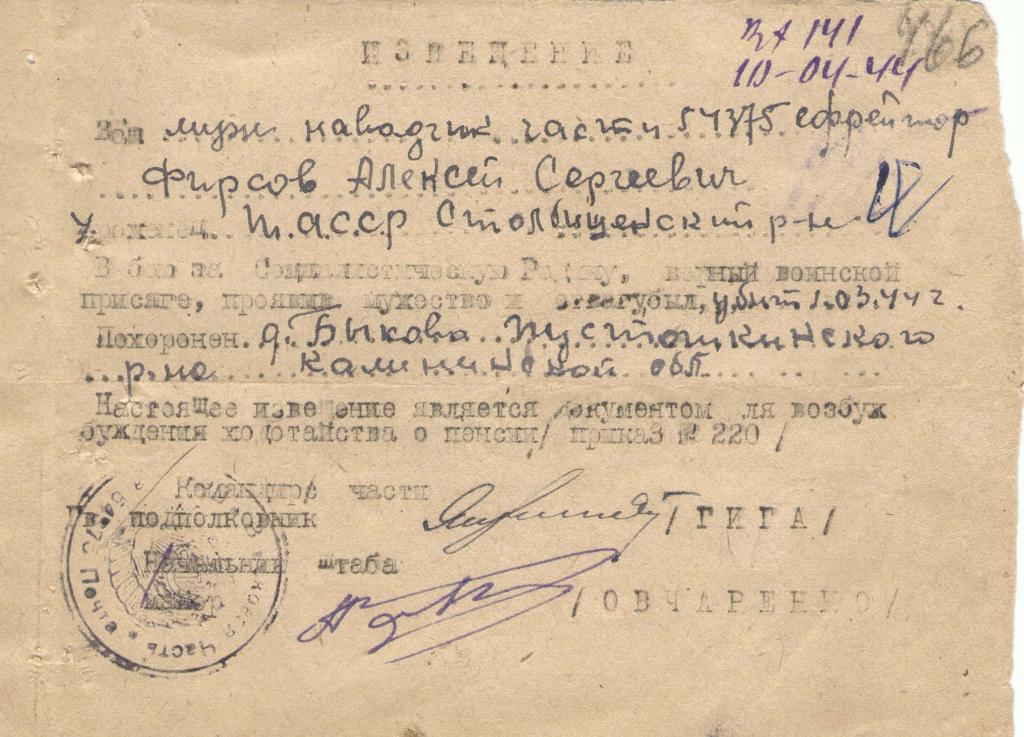 466
вх 141
10-04-44
ИЗВЕЩЕНИЕ
Ваш муж наводчик части 54375 ефрейтор
Фирсов Алексей Сергеевич
Уроженец Т.АССР Столбищенский р-н
В бою за Социалистическую Родину, верный воинской
присяге, проявив мужество и отвагу был, убит 1.03.44 г.
Похоронен. д. Быкова Пустошкинского
р-на Калининской обл
Настоящее извещение является документом ля возбуж
буждения ходотайства о пенсии/ приказ № 220 /
Командир части
Гв. подполковник /ГИГА/
Начальник штаба
майор /ОВЧАРЕНКО/
часть